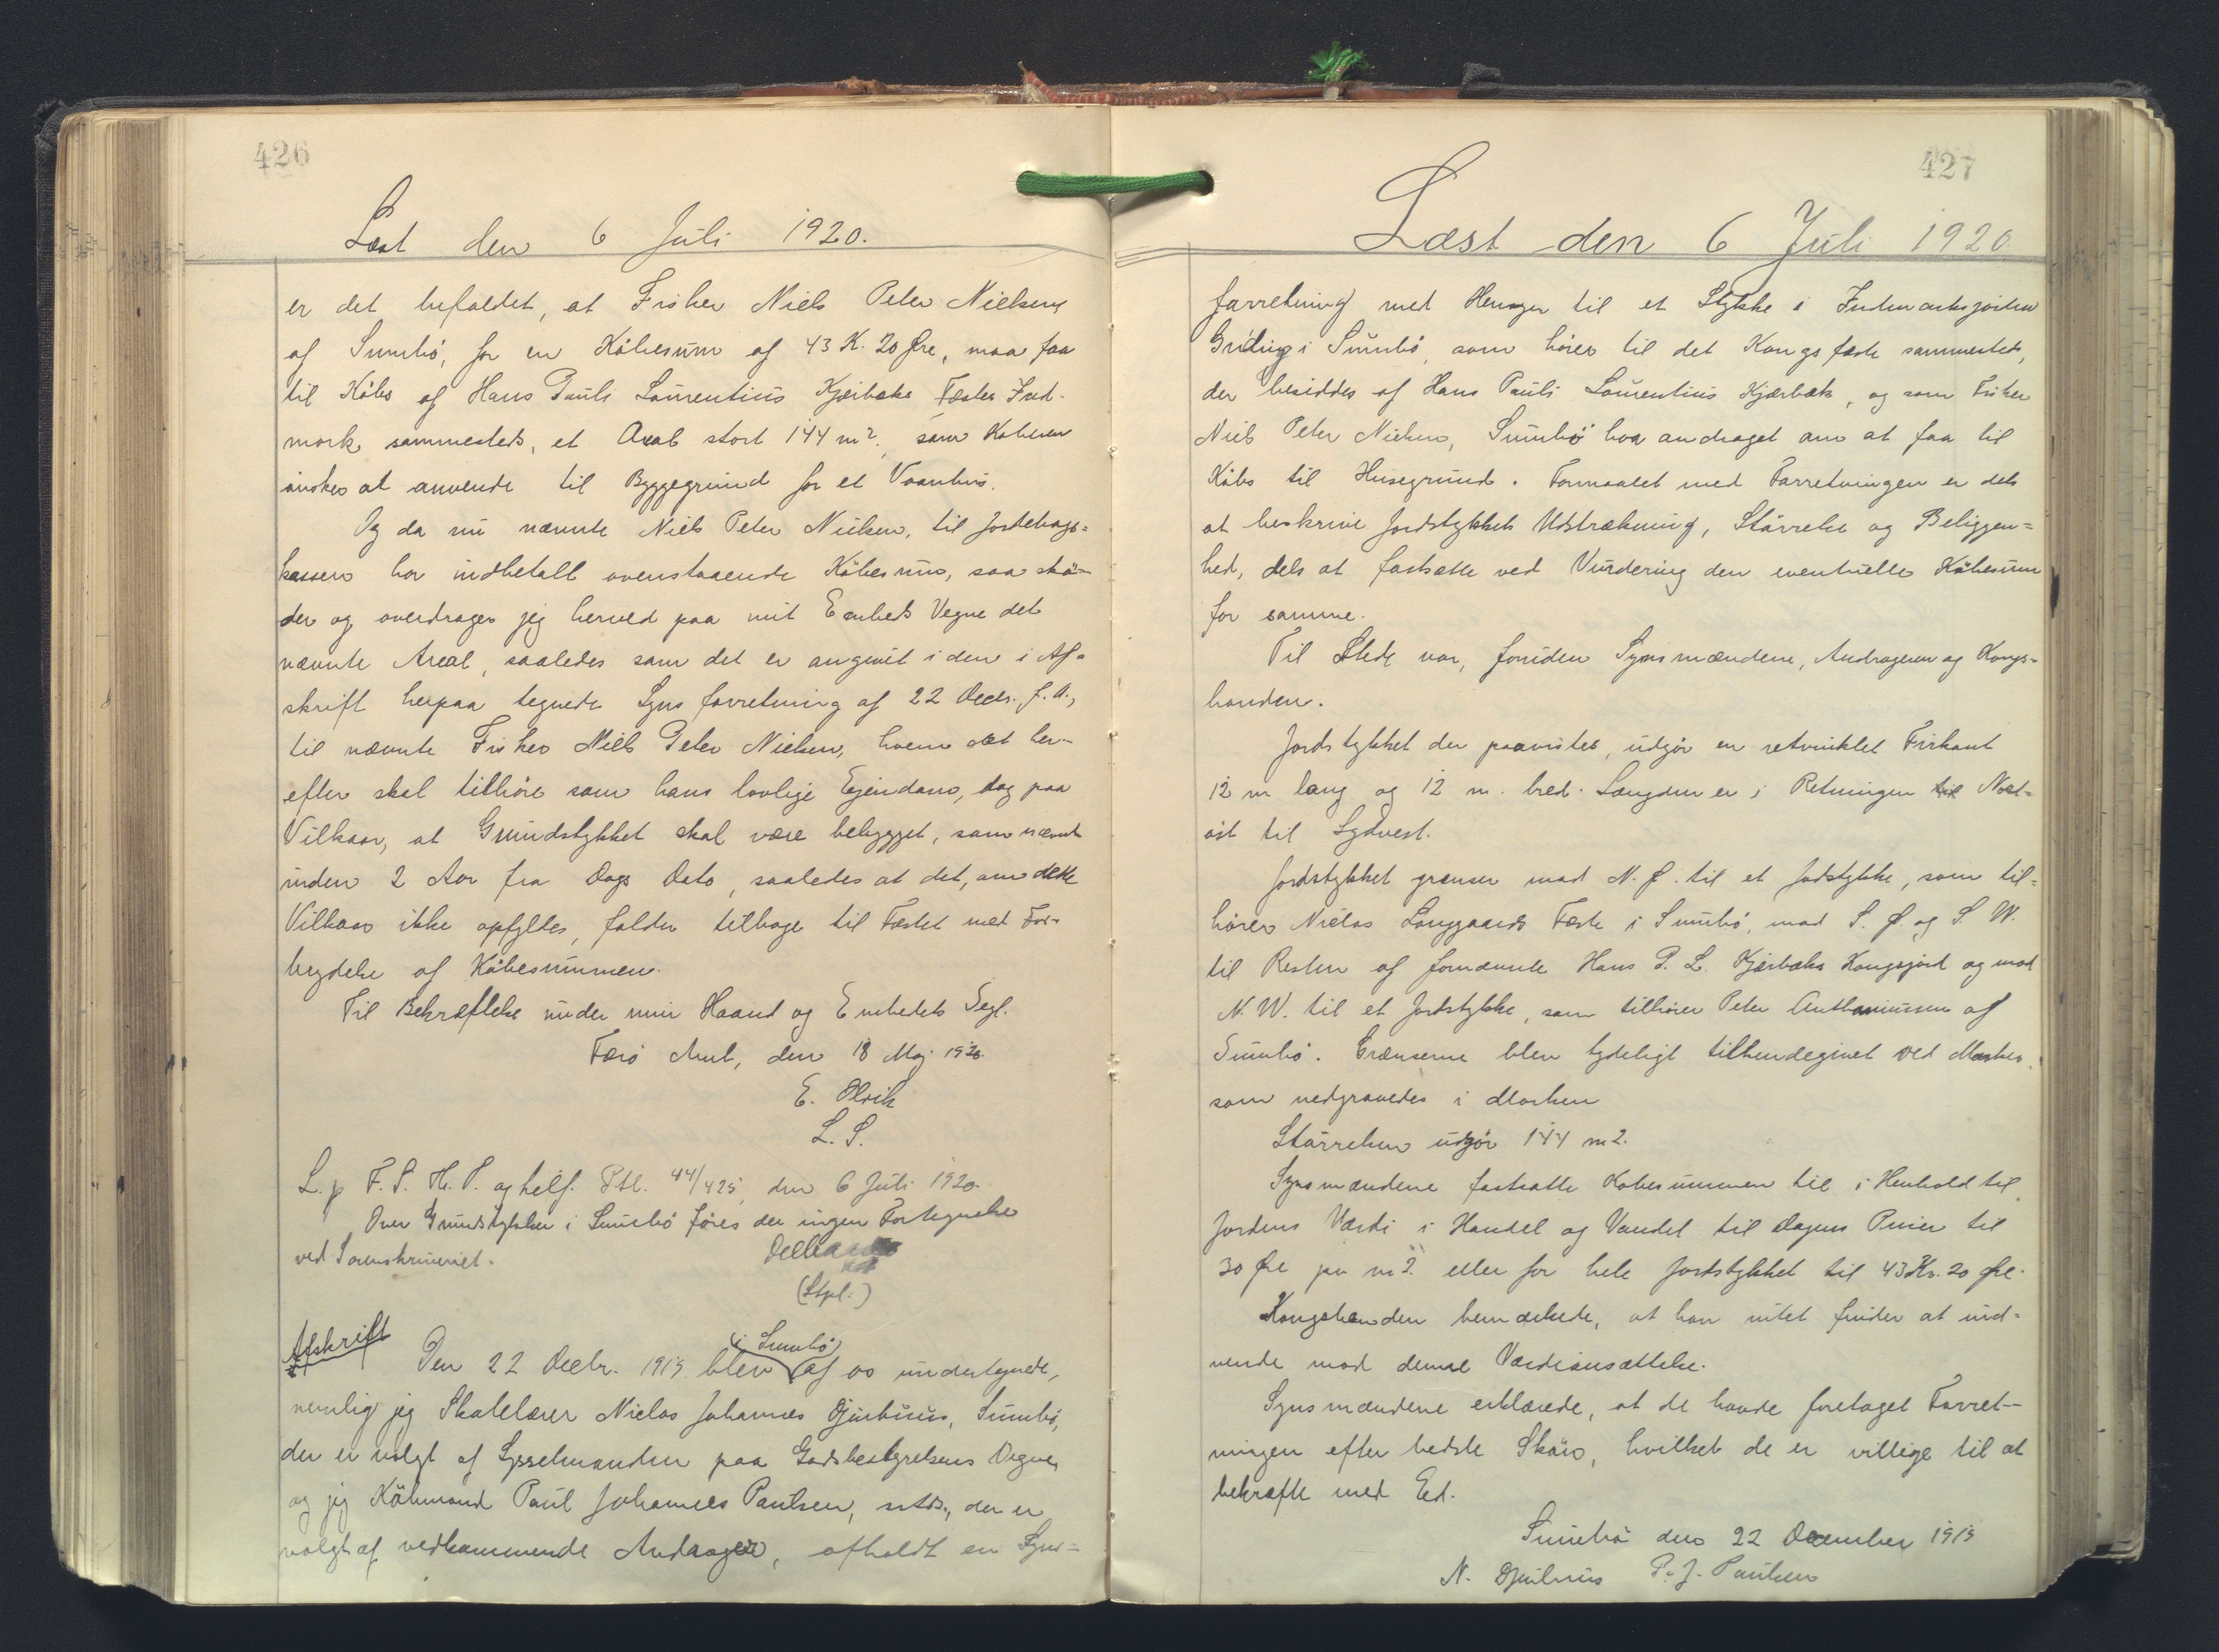 426
Læst den 6 Juli 1920.
er det bifaldet, at Fisker Niels Peter Nielsen
af Sumbö, for en Köbesum af 43 K. 20 Øre, maa faa
til Købs af Hans Pauli Laurentius Kjærbæks Fæstes Ind-
mark sammesteds, et Areal stort 144 m², som Køberen
ønsker at anvende til Byggegrund for et Vaanhus.
Og da nu nævnte Niels Peter Nielsen, til Jordebogs=
kassen har indbetalt ovenstaaende Købesum, saa skø-
der og overdrager jeg herved paa mit Embeds Vegne det
nævnte Areal, saaledes som det er angivet i den i Af-
skrift herpaa tegnede Synsforretning af 22 Decbr. f. A.,
til nævnte Fisker Niels Peter Nielsen, hvem det her-
efter skal tilhøre som hans lovlige Ejendom, dog paa
Vilkaar, at Grundstykket skal være bebygget, som nævnt
inden 2 Aar fra Dags Dato, saaledes at det, om dette
Vilkaar ikke opfyldes, falder tilbage til Fæstet med For-
brydelse af Købesummen.
Til Bekræftelse under min Haand og Embedets Segl.
Færö Amt, den 18 Maj 1920.
E. Olrik
L. S.
L. p F. S. H. P. og helf. Ptl. 44/425, den 6 Juli 1920.
Over Grundstykker i Sumbö føres der ingen Fortegnelse
ved Sorenskriveriet.
(Stpl.)
Afskrift
(i Sumbö)
Den 22 Decbr. 1919 blev af os undertegnede,
nemlig jeg Skolelærer Niclas Johannes Djurhuus, Sumbö,
der er valgt af Sysselmanden paa Godsbestyrelsens Vegne,
og jeg Købmand Paul Johannes Paulsen, sstds., der er
valgt af vedkommende Andrager, afholdt en Syns=
427
Læst den 6 Juli 1920
forretning med Hensyn til et Stykke i Indmarksjorden
i Sumbö, som hører til det Kongsfæste sammesteds,
der besiddes af Hans Pauli Laurentius Kjærbæk, og som Fisker
Niels Peter Nielsen, Sumbö har andraget om at faa til
Købs til Husegrund. Formaalet med Forretningen er dels
at beskrive Jordstykkets Udstrækning, Størrelse og Beliggen=
hed, dels at fastsætte ved Vurdering den eventuelle Købesum
for samme.
Til Stede var, foruden Synsmændene, Andrageren og Kongs=
bonden.
Jordstykket der paavistes, udgør en retvinklet Firkant
12 m lang og 12 m. bred. Længden er i Retningen Nord=
øst til Sydvest.
Jordstykket grænser mod N. Ø. til et Jordstykke, som til=
hører Niclas Langgaards Fæste i Sumbö, mod S. Ø. og S. W.
til Resten af fornævnte Hans P. L. Kjærbæks Kongsjord og mod
N. W. til et Jordstykke, som tilhører Peter Anthoniussen af
Sumbö. Grænserne blev tydeligt tilkendegivet ved Mærker,
som nedgravedes i Marken
Størrelsen udgør 144 m2.
Synsmændene fastsatte Købesummen til i Henhold til
Jordens Værdi i Handel og Vandel til Dagens Priser til
30 Øre pr m2. eller for hele Jordstykket til 43 Kr. 20 Øre.
Kongsbonden bemærkede, at han intet finder at ind=
vende mod denne Værdiansættelse.
Synsmændene erklærede, at de havde foretaget Forret-
ningen efter bedste Skøn, hvilket de er villige til at
bekræfte med Ed.
Sumbö den 22 December 1919
N. Djurhuus P. J. Paulsen